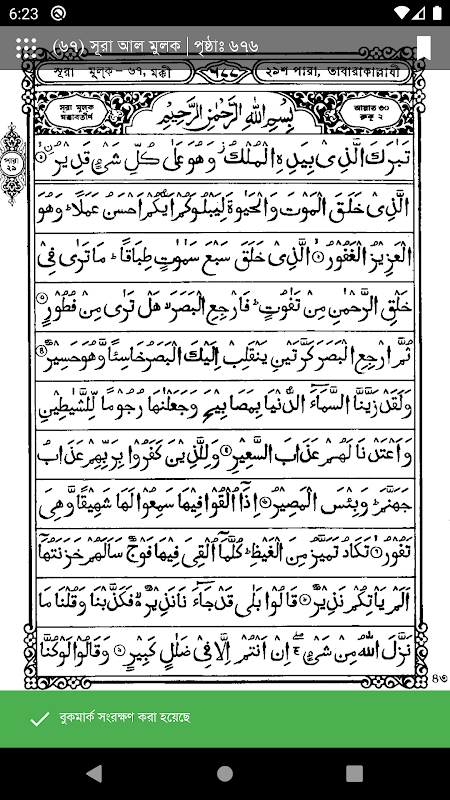 6:23
(৬৭) সূরা আল মুলক | পৃষ্ঠাঃ ৬৭৬
সূরা মুলক – ৬৭, মক্কী
২৯শ পারা, তাবারাকাল্লাযী
সূরা মুলক
মক্কাবতীর্ণ
بِسْمِ اللّٰهِ الرَّحْمٰنِ الرَّحِيْمِ
আয়াত ৩০
রুকু ২
পারা
২৯
تَبٰرَكَ الَّذِىْ بِيَدِهِ الْمُلْكُ ز وَهُوَ عَلٰى كُلِّ شَىْءٍ قَدِيْرُ ۨ
الَّذِىْ خَلَقَ الْمَوْتَ وَالْحَيٰوةَ لِيَبْلُوَكُمْ اَيُّكُمْ اَحْسَنُ عَمَلًا ؕ وَهُوَ
الْعَزِيْزُ الْغَفُوْرُ ۙ الَّذِىْ خَلَقَ سَبْعَ سَمٰوٰتٍ طِبَاقًا ؕ مَا تَرٰى فِىْ
خَلْقِ الرَّحْمٰنِ مِنْ تَفٰوُتٍ ؕ فَارْجِعِ الْبَصَرَ ۙ هَلْ تَرٰى مِنْ فُطُوْرٍ
ثُمَّ ارْجِعِ الْبَصَرَ كَرَّتَيْنِ يَنْقَلِبْ اِلَيْكَ الْبَصَرُ خَاسِئًا وَّهُوَ حَسِيْرٌ
وَلَقَدْ زَيَّنَّا السَّمَآءَ الدُّنْيَا بِمَصَابِيْحَ وَجَعَلْنٰهَا رُجُوْمًا لِّلشَّيٰطِيْنِ
وَاَعْتَدْنَا لَهُمْ عَذَابَ السَّعِيْرِ وَلِلَّذِيْنَ كَفَرُوْا بِرَبِّهِمْ عَذَابُ
جَهَنَّمَ ؕ وَبِئْسَ الْمَصِيْرُ اِذَآ اُلْقُوْا فِيْهَا سَمِعُوْا لَهَا شَهِيْقًا وَّهِىَ
تَفُوْرُ ۙ تَكَادُ تَمَيَّزُ مِنَ الْغَيْظِ ؕ كُلَّمَآ اُلْقِىَ فِيْهَا فَوْجٌ سَاَلَهُمْ خَزَنَتُهَآ
اَلَمْ يَاْتِكُمْ نَذِيْرٌ قَالُوْا بَلٰى قَدْ جَآءَنَا نَذِيْرٌ ۙ فَكَذَّبْنَا وَقُلْنَا مَا
نَزَّلَ اللّٰهُ مِنْ شَىْءٍ ۚ اِنْ اَنْتُمْ اِلَّا فِىْ ضَلٰلٍ كَبِيْرٍ وَقَالُوْا لَوْ كُنَّا
৪৩
বুকমার্ক সংরক্ষণ করা হয়েছে